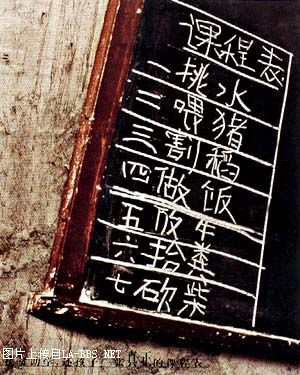 课程表
一挑水
二喂猪
三割稻
四做饭
五放牛
六拾粪
七砍柴
图片上传自LA-BBS.NET